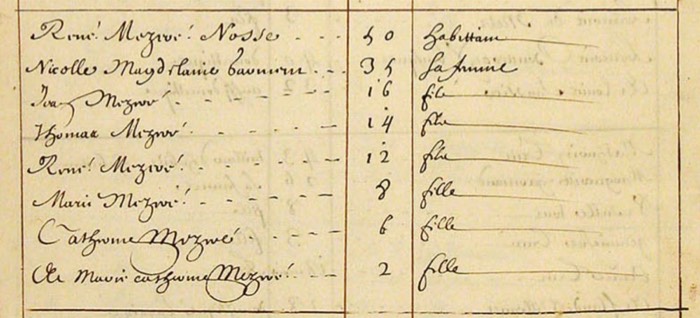 René Mezeré Nosse 50 habittant
Nicolle Magdelaine 35 sa femme
Jean Mezeré 16 fils
Thomas Mezeré 14 fils
René Mezeré 12 fils
Marie Mezeré 8 fille
Catherine Mezeré 6 fille
Marie catherine Mezeré 2 fille